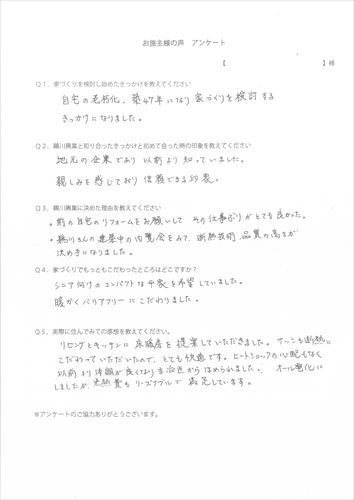 お施主様の声　アンケート
【　　　　　　　　　　】様
Q1．家づくりを検討し始めたきっかけを教えてください
自宅の老朽化。築47年になり家づくりを検討する
きっかけになりました。
Q2．鵜川興業と知り合ったきっかけと初めて会った時の印象を教えてください
地元の企業であり以前より知っていました。
親しみを感じており信頼できる印象。
Q3．鵜川興業に決めた理由を教えてください
・前の自宅のリフォームをお願いして その仕事ぶりがとても良かった。
・鵜川さんの建築中の内覧会をみて、断熱技術、品質の高さが
決めきになりました。
Q4．家づくりでもっともこだわったところはどこですか？
シニア向けのコンパクトな平家を希望していました。
暖かくバリアフリーにこだわりました。
Q5．実際に住んでみての感想を教えてください。
リビングとキッチンに床暖房を提案していただきました。サッシも断熱に
こだわっていただいたので、とても快適です。ヒートショックの心配もなく
以前より体調が良くなり主治医からほめられました。 オール電化に
しましたが、光熱費もリーズナブルで満足しています。
※アンケートのご協力ありがとうございます。